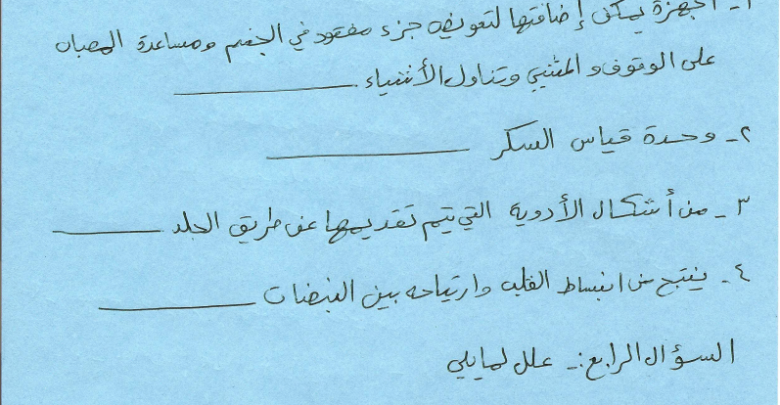 ١- أجهزة يمكن إضافتها لتعويض جزء مفقود في الجسم ومساعدة المصاب
على الوقوف والمشي وتناول الأشياء __________
٢- وحدة قياس السكر __________
٣- من أشكال الأدوية التي يتم تقديمها عن طريق الجلد __________
٤- ينتج من انبساط القلب وارتياحه بين النبضات __________
السؤال الرابع:- علل لما يلي